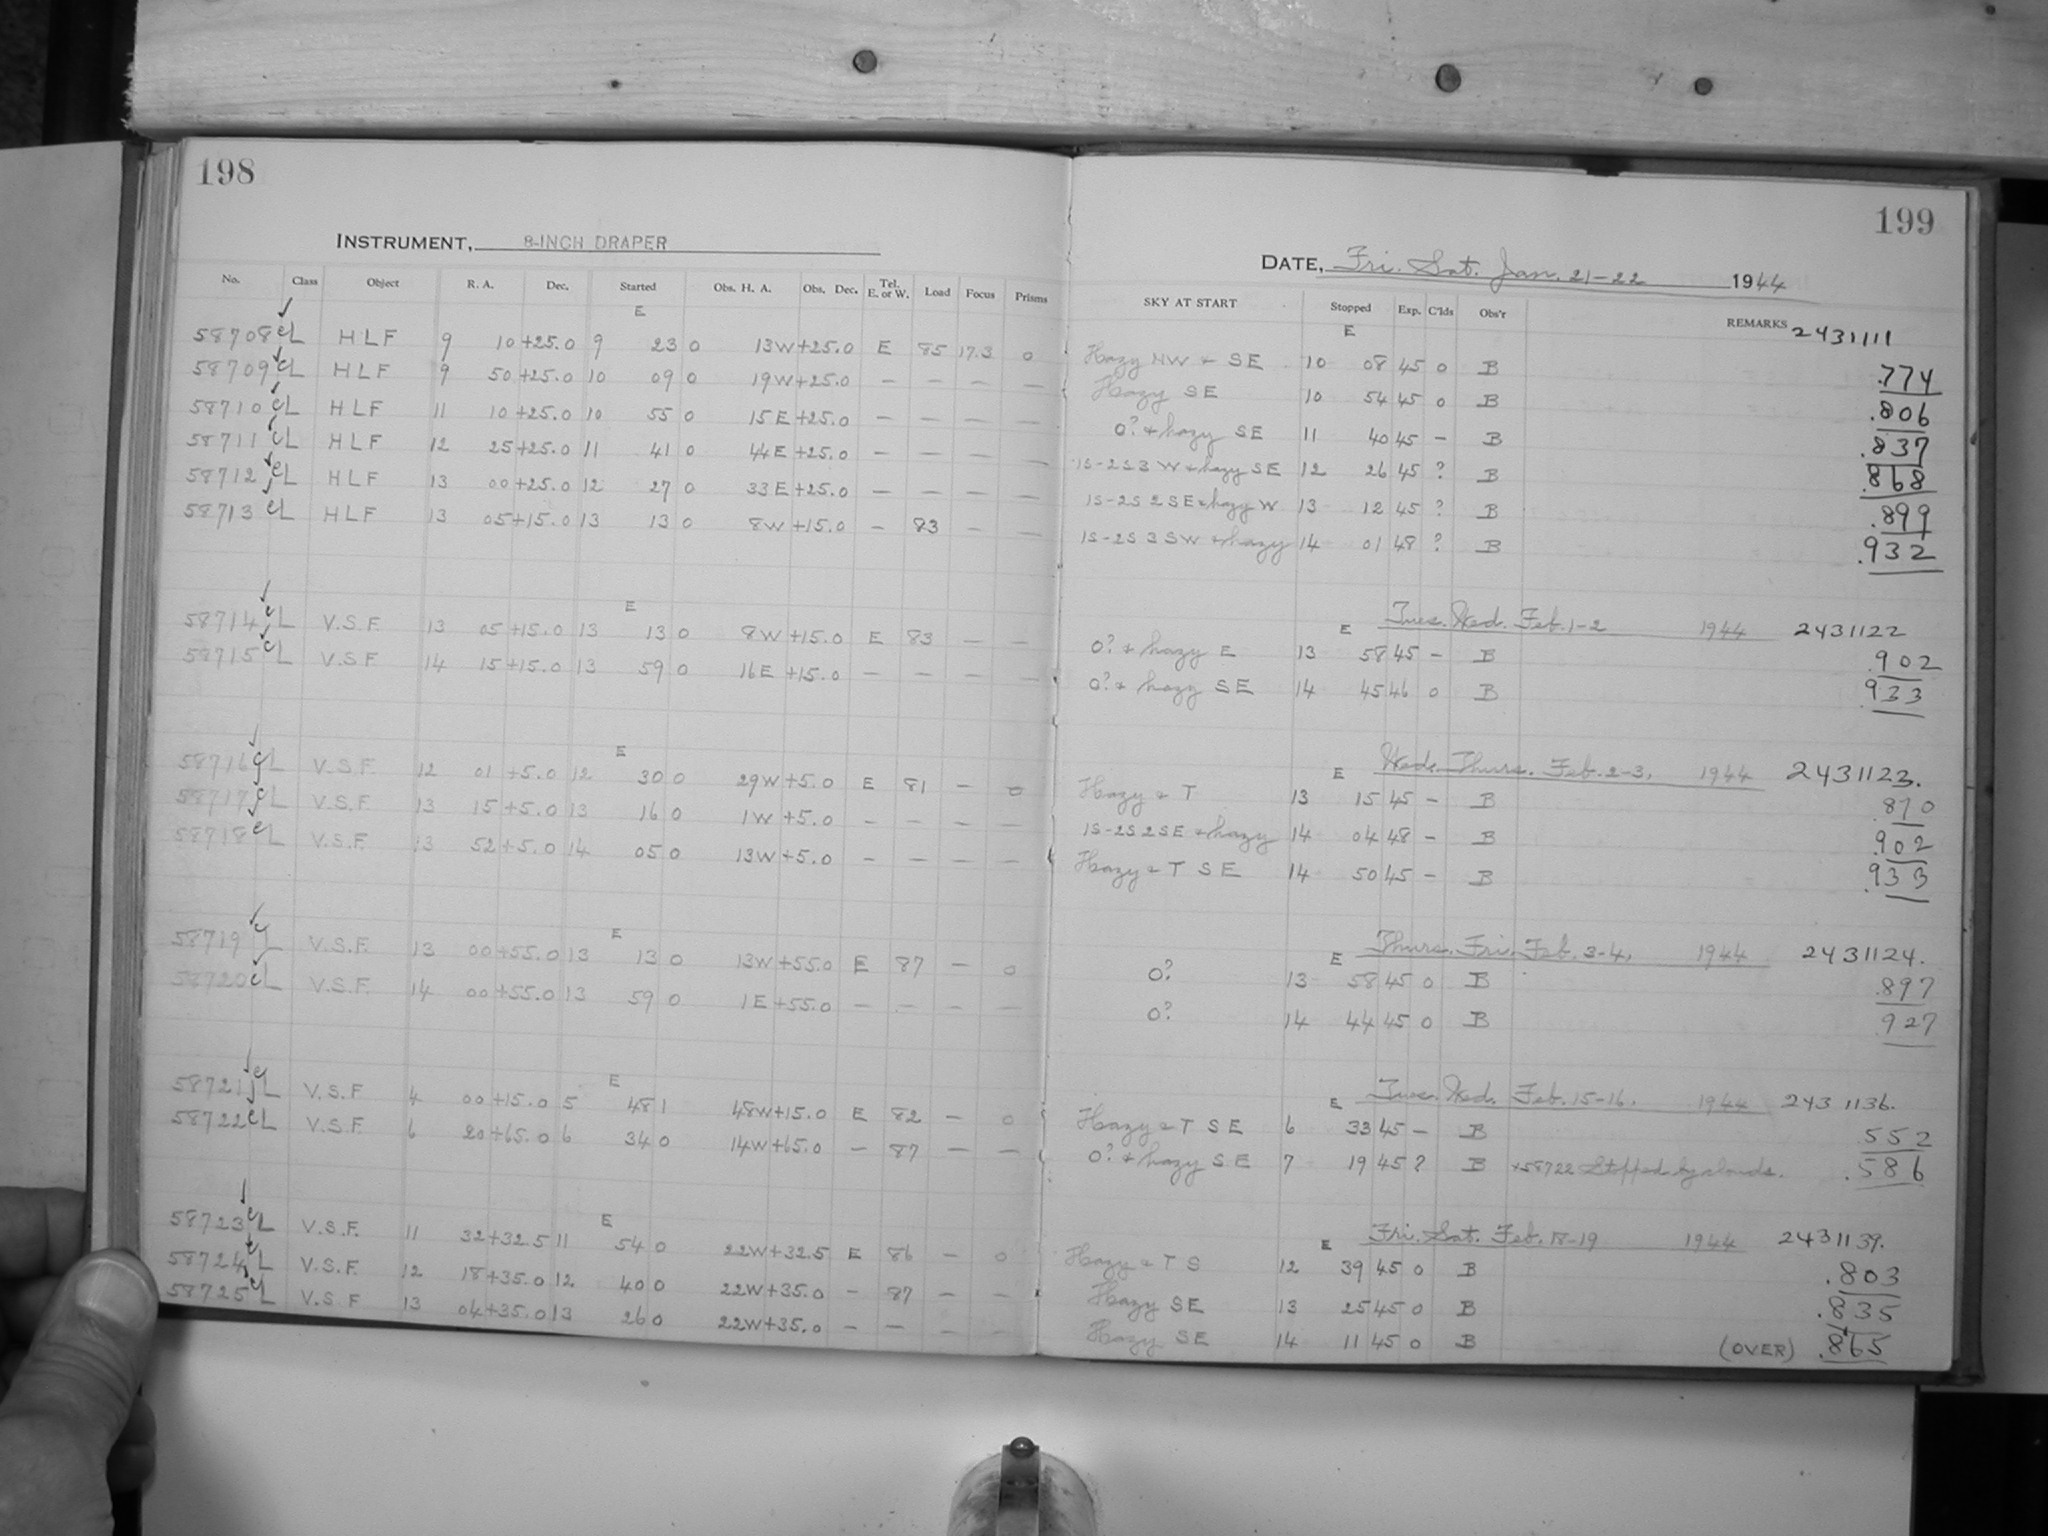 198
INSTRUMENT, 8-INCH DRAPER
No. Class Object R. A. Dec. Started Obs. H. A. Obs. Dec. Tel. E. or W. Load Focus Prisms
E
58708 cL HLF 9 10 +25.0 9 23 0 13W +25.0 E 85 17.3 0
58709 cL HLF 9 50 +25.0 10 09 0 19W +25.0 — — — —
58710 cL HLF 11 10 +25.0 10 55 0 15E +25.0 — — — —
58711 cL HLF 12 25 +25.0 11 41 0 44E +25.0 — — — —
58712 cL HLF 13 00 +25.0 12 27 0 33E +25.0 — — — —
58713 cL HLF 13 05 +15.0 13 13 0 8W +15.0 — 83 — —
E
58714 cL V.S.F. 13 05 +15.0 13 13 0 8W +15.0 E 83 — —
58715 cL V.S.F 14 15 +15.0 13 59 0 16E +15.0 — — — —
E
58716 cL V.S.F. 12 01 +5.0 12 30 0 29W +5.0 E 81 — 0
58717 cL V.S.F. 13 15 +5.0 13 16 0 1W +5.0 — — — —
58718 cL V.S.F. 13 52 +5.0 14 05 0 13W +5.0 — — — —
E
58719 cL V.S.F. 13 00 +55.0 13 13 0 13W +55.0 E 87 — 0
58720 cL V.S.F. 14 00 +55.0 13 59 0 1E +55.0 — — — —
E
58721 cL V.S.F 4 00 +15.0 5 48 1 48W +15.0 E 82 — 0
58722 cL V.S.F. 6 20 +65.0 6 34 0 14W +65.0 — 87 — —
E
58723 cL V.S.F. 11 32 +32.5 11 54 0 22W +32.5 E 86 — 0
58724 cL V.S.F. 12 18 +35.0 12 40 0 22W +35.0 — 87 — —
58725 cL V.S.F 13 04 +35.0 13 26 0 22W +35.0 — — — —
199
DATE, Fri. Sat. Jan. 21-22 1944
SKY AT START Stopped Exp. C'lds Obs'r REMARKS 2431111
E
Hazy NW & SE 10 08 45 0 B .774
Hazy SE 10 54 45 0 B .806
0? & hazy SE 11 40 45 — B .837
1S-2S 3 W & hazy SE 12 26 45 ? B .868
1S-2S 2 SE & hazy W 13 12 45 ? B .899
1S-2S 3 SW & hazy 14 01 48 ? B .932
E Tues. Wed. Feb. 1-2 1944 2431122
0? & hazy E 13 58 45 — B .902
0? & hazy SE 14 45 46 0 B .933
E Wed. Thurs. Feb. 2-3, 1944 2431123.
Hazy & T 13 15 45 — B 870
1S-2S 2 SE & hazy 14 04 48 — B .902
Hazy & T SE 14 50 45 — B .933
E Thurs. Fri. Feb. 3-4, 1944 2431124.
0? 13 58 45 0 B .897
0? 14 44 45 0 B .927
E Tues. Wed. Feb. 15-16, 1944 2431136.
Hazy & T SE 6 33 45 — B 552
0? & hazy SE 7 19 45 ? B +58722 Stopped by clouds. .586
E Fri. Sat. Feb. 18-19 1944 2431139.
Hazy & T S 12 39 45 0 B .803
Hazy SE 13 25 45 0 B .835
Hazy SE 14 11 45 0 B (OVER) .865